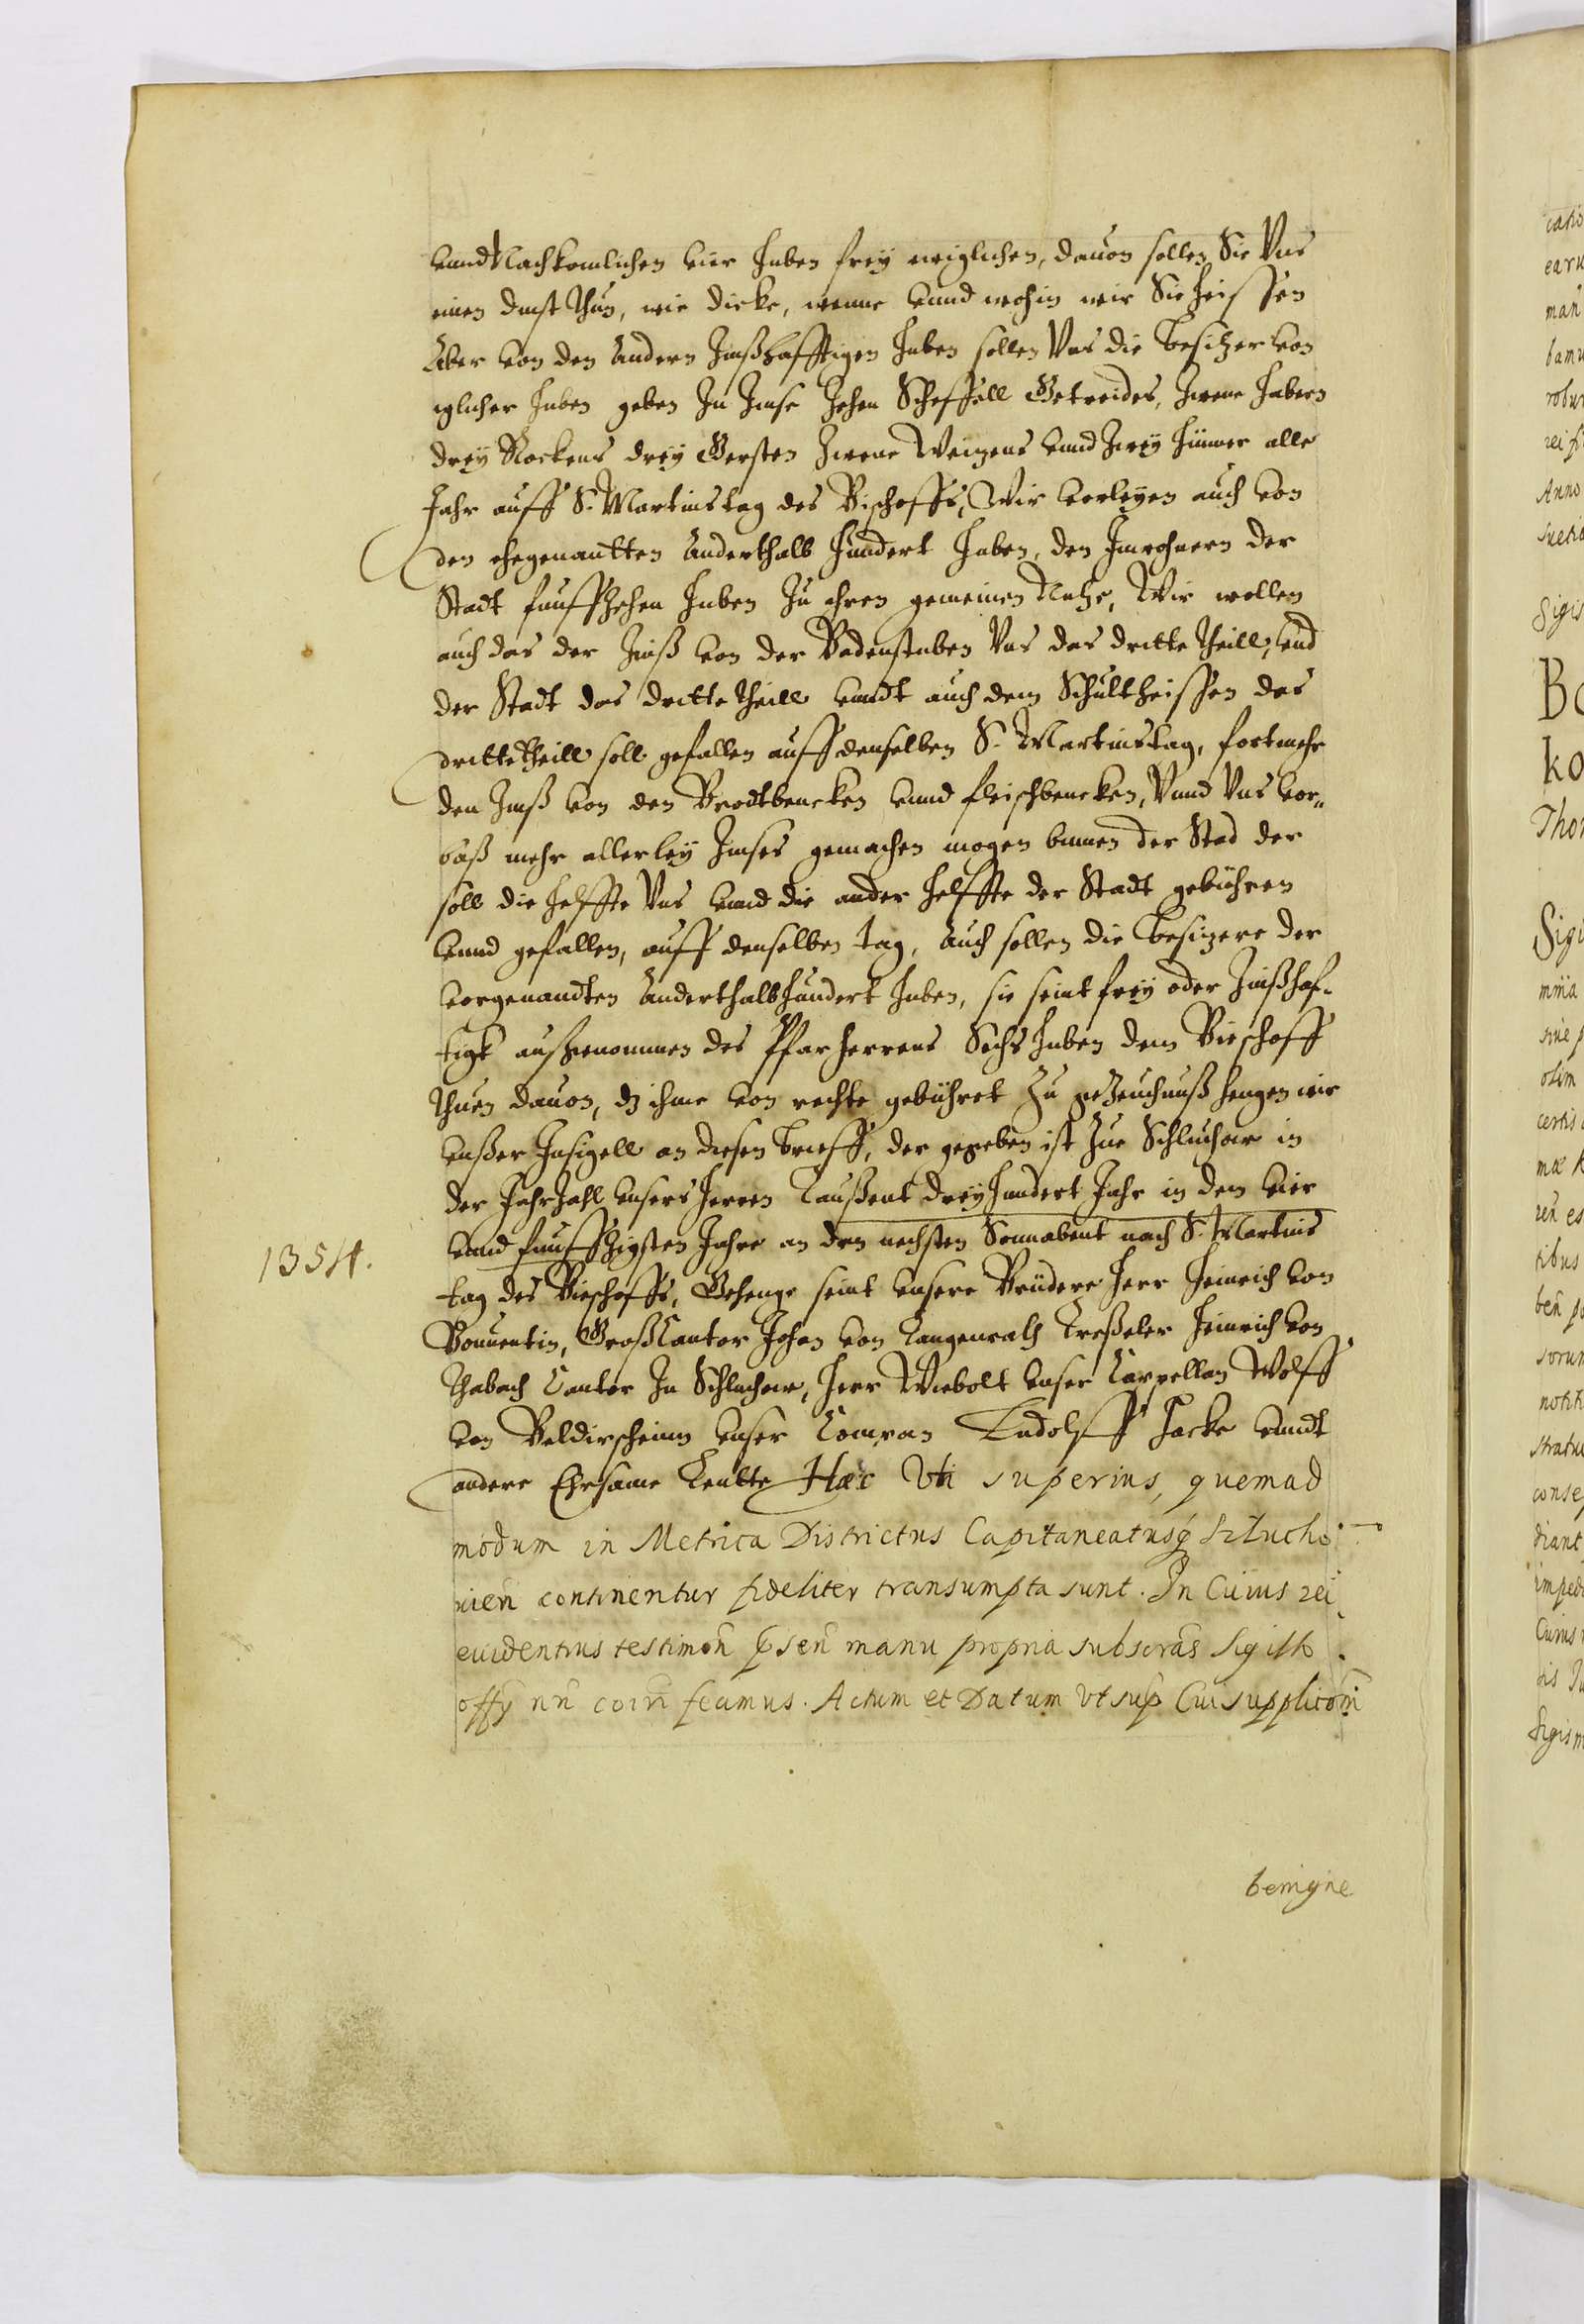 vnnd Nachkomlichen vier Huben frey ewiglichen, dauon sollen Sie Vns
einen dinst thun, wie dicke, wenne vnnd wohin wir Sie heissen
Aber von den Andern Zinßhafftigen Huben sollen Vns die besitzer von
iglicher Huben geben Zu Zinse Zehen Scheffell Getreides, Zwene Habern
drey Rockens drey Gersten Zwene Weizens vnnd Zwey Hüner alle
Jahr auff S. Martinstag des Bischoffs, Wir verleyen auch von
den ehegenantten Anderthalb Hundert Huben, den Inwohnern der
Stadt funffzehen Huben Zu ihren gemeinen Nutze, Wir wollen
auch das der Zinß von der Badenstuben Vns das dritte Theill, vnd
der Stadt das dritte Theill vnndt auch dem Schultheissen das
dritte Theill soll gefallen auff denselben S. Martinstag, fortmehr
den Zinß von den Brodtbencken vnnd fleischbencken, Vnnd Vns vor„
baß mehr allerley Zinses gemachen mogen binnen der Stad der
soll die Helffte Vns vnnd die ander Helffte der Stadt gebühren
vnnd gefallen, auff denselben tag, Auch sollen die besizere der
vorgenandten Anderthalbhundert Huben, sie seint frey oder Zinßhaf-
tigk außgenommen des Pfarherrens Sechs Huben dem Bieschoff
thuen dauon, dz ihme von rechte gebühret Zu gezeuchnuß hengen wir
vnßer Insigell an diesen brieff, der gegeben ist Zue Schluchow in
der Jahrzahl vnsers Herren Taußent dreyhundert Jahr in dem vier
vnnd funffzigsten Jahre an den nechsten Sonnabent nach S. Martins
1354.
tag des Bieschoffs, Gezeuge seint vnsere Brüdere Herr Heinrich von
Bouuentin, GroßCantor Johan von Langenrath Treßeler Heinrich von
Thabach Cantor Zu Schluchow, Herr Wiebolt vnser Cappellan Wolff
von Beldirscheim vnser Compan Ludolff Hacke vnndt
andere Ehrsame Leutte Hæc Vti superius, quemad
modum in Metrica Districtus Capitaneatusq Szlucho
uien continentur fideliter transumpta sunt. In Cuius rei
euidentius testimon psen manu propria subscras Sigillo
offy nn coiri fecimus. Actum et Datum Vt sup Cui suppliconi
benigne